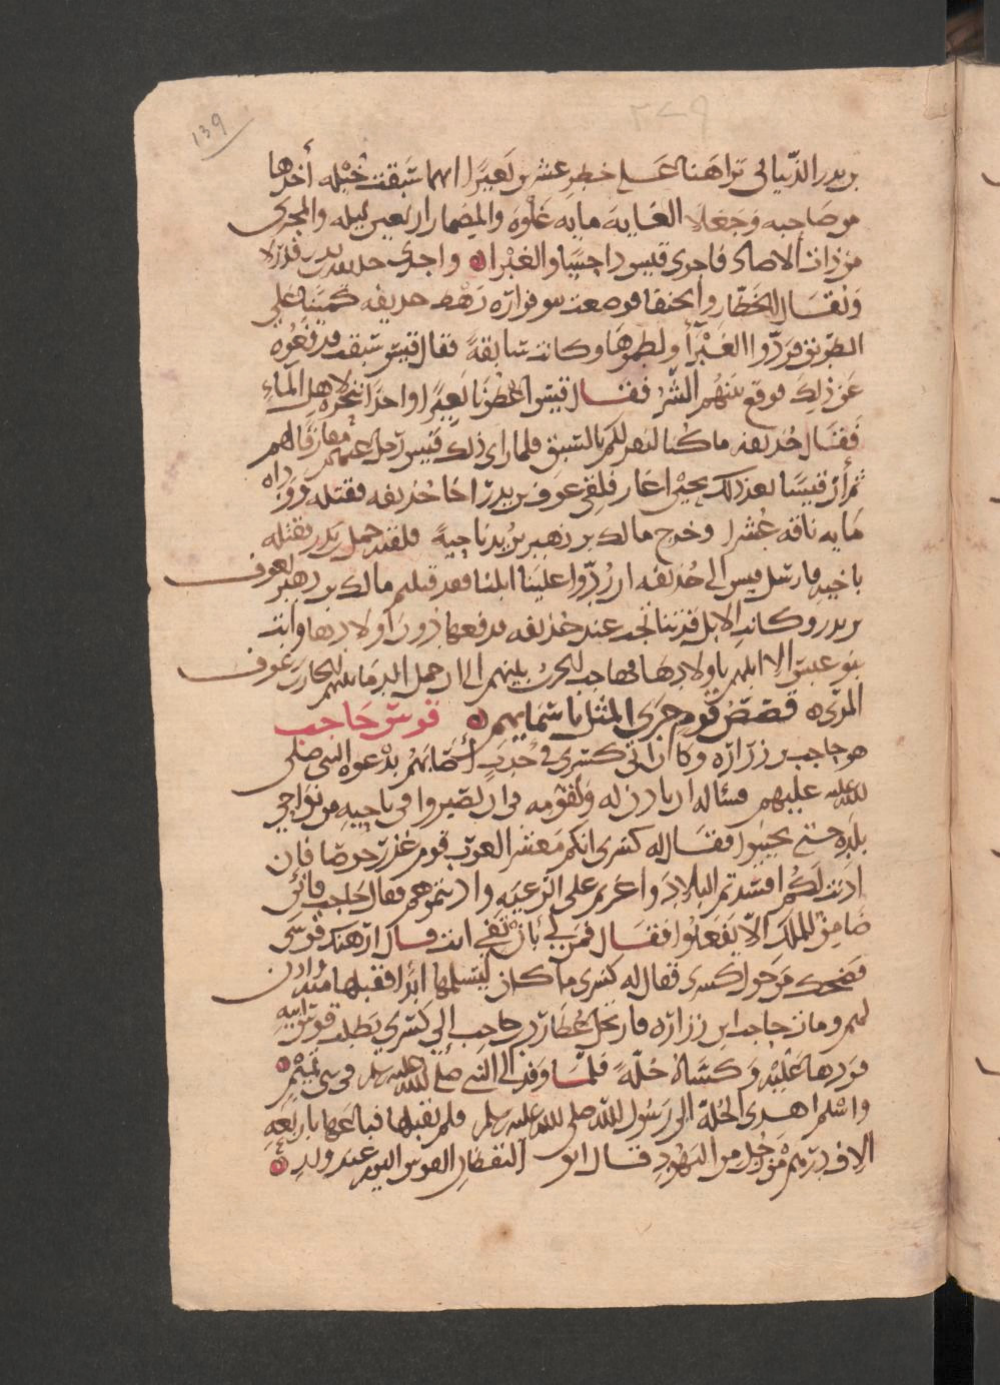 139
بن بدر الذبياني تراهنا على خطر عشرين بعيرا ايهما سبقت خيله أخذها
من صاحبه وجعلا الغاية مايه غلوة والمضمار اربعين ليله والمجرى
من ذات الاصاد فاجرى قيس داحسا والغبرا واجرى حذيفه
ويقال الخطار والحنفا فوضعت بنو فزاره رهط حذيفه كمينا على
الطريق فردوا الغبرا ولطموها وكانت سابقة فقال قيس سبقت فدفعوه
عن ذلك فوقع بينهم الشر فقال قيس اعطونا بعيرا واحدا ننحره لاهل الماء
فقال حذيفه ما كنا لنقر لكم بالسبق فلما راى ذلك قيس رحل عنهم مفارقا لهم
ثم أن قيسا بعد ذلك بحين اغار فلقي عوف بن بدر اخا حذيفه فقتله ووداه
مايه ناقه عشرا وخرج مالك بن زهير يريد ناحية فلقيه حمل بن بدر فقتله
باخيه فارسل قيس الى حذيفه ان ردوا علينا ابلنا فقد قتلتم مالك بن زهير بعوف
بن بدر وكانت الابل قد نتاتجت عند حذيفه فدفعها دون اولادها وابت
بنو عبس الا ابلهم باولادها فهاجت الحرب بينهم الى ان حمل الدما بينهم الحارث بن عوف
المري قصص قوم جرى المثل باسمايهم قوس حاجب
هو حاجب بن زراره وكان اتى كسرى في جدب أصابهم بدعوه النبي صلى
الله عليه عليهم فساله ان ياذن له ولقومه في ان يصيروا في ناحيه من نواحي
بلده حتى يحيوا فقال له كسرى انكم معشر العرب قوم غدر حرصا فان
اذنت لكم افسدتم البلاد واغرتم على الرعيه واذيتموهم فقال حاجب فانى
ضامن للملك الا يفعلوا فقال فمن لي بان تفي انت قال ارهنك قوسي
فضحك من حول كسرى فقال له كسرى ما كان ليسلمها ابدا فقبلها منه واذن
لهم ومات حاجب ابن زراره فارتحل عطارد بن حاجب الى كسرى يطلب قوس ابيه
فردها عليه وكساه حلة فلما وفد الى النبي صلى الله عليه وسلم في بني تميم
واسلم اهدى الحلة الى رسول الله صلى الله عليه وسلم فلم يقبلها فباعها باربعة
الاف درهم من رجل من اليهود قال ابو اليقظان القوس اليوم عند ولد